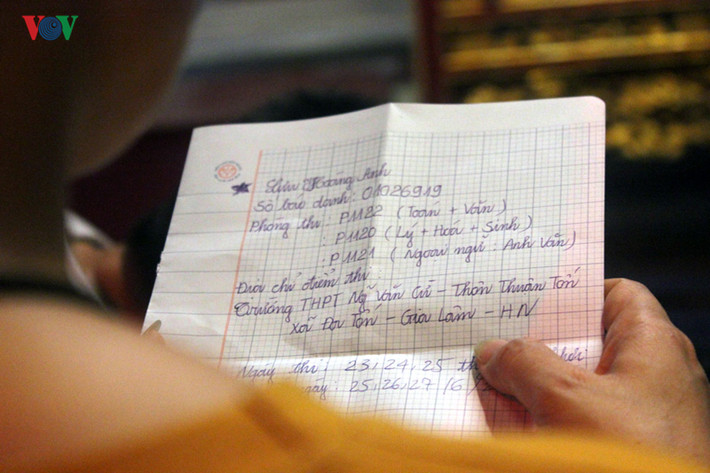 VOV
Hoàng Anh
Số báo danh: 01026919
Phòng thi: P1122 (Toán + Văn)
: P1120 (Lý + Hoá + Sinh)
: P1121 (Ngoại ngữ: Anh Văn)
Địa chỉ điểm thi
Trường THPT Ng Văn Cừ - Thôn Thuận Tốn
Xã Đa Tốn - Gia Lâm - HN
Ngày thi: 23, 24, 25
25, 26, 27 /6/